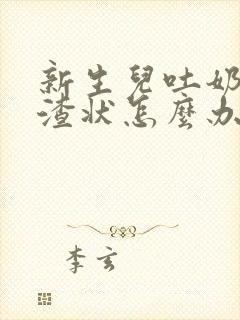 新生兒吐奶
渣狀怎麼办
李玄